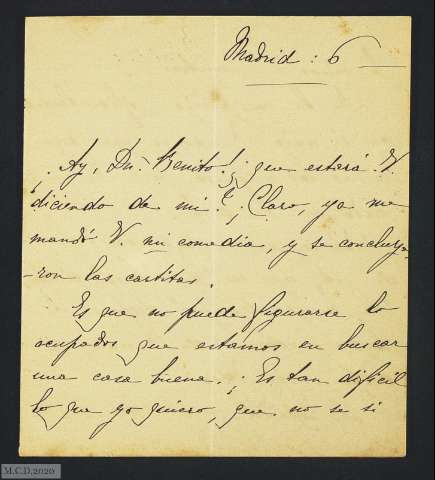 Madrid: 6
¡Ay, Dn. Benito! ¿que estará V.
diciendo de mi? ¡Claro, ya me
mandó V. mi comedia, y se concluye-
-ron las cartitas.
Es que no puede figurarse lo
ocupados que estamos en buscar
una casa buena. ¡Es tan dificil
lo que yo quiero, que no se si
M.C.D.2020